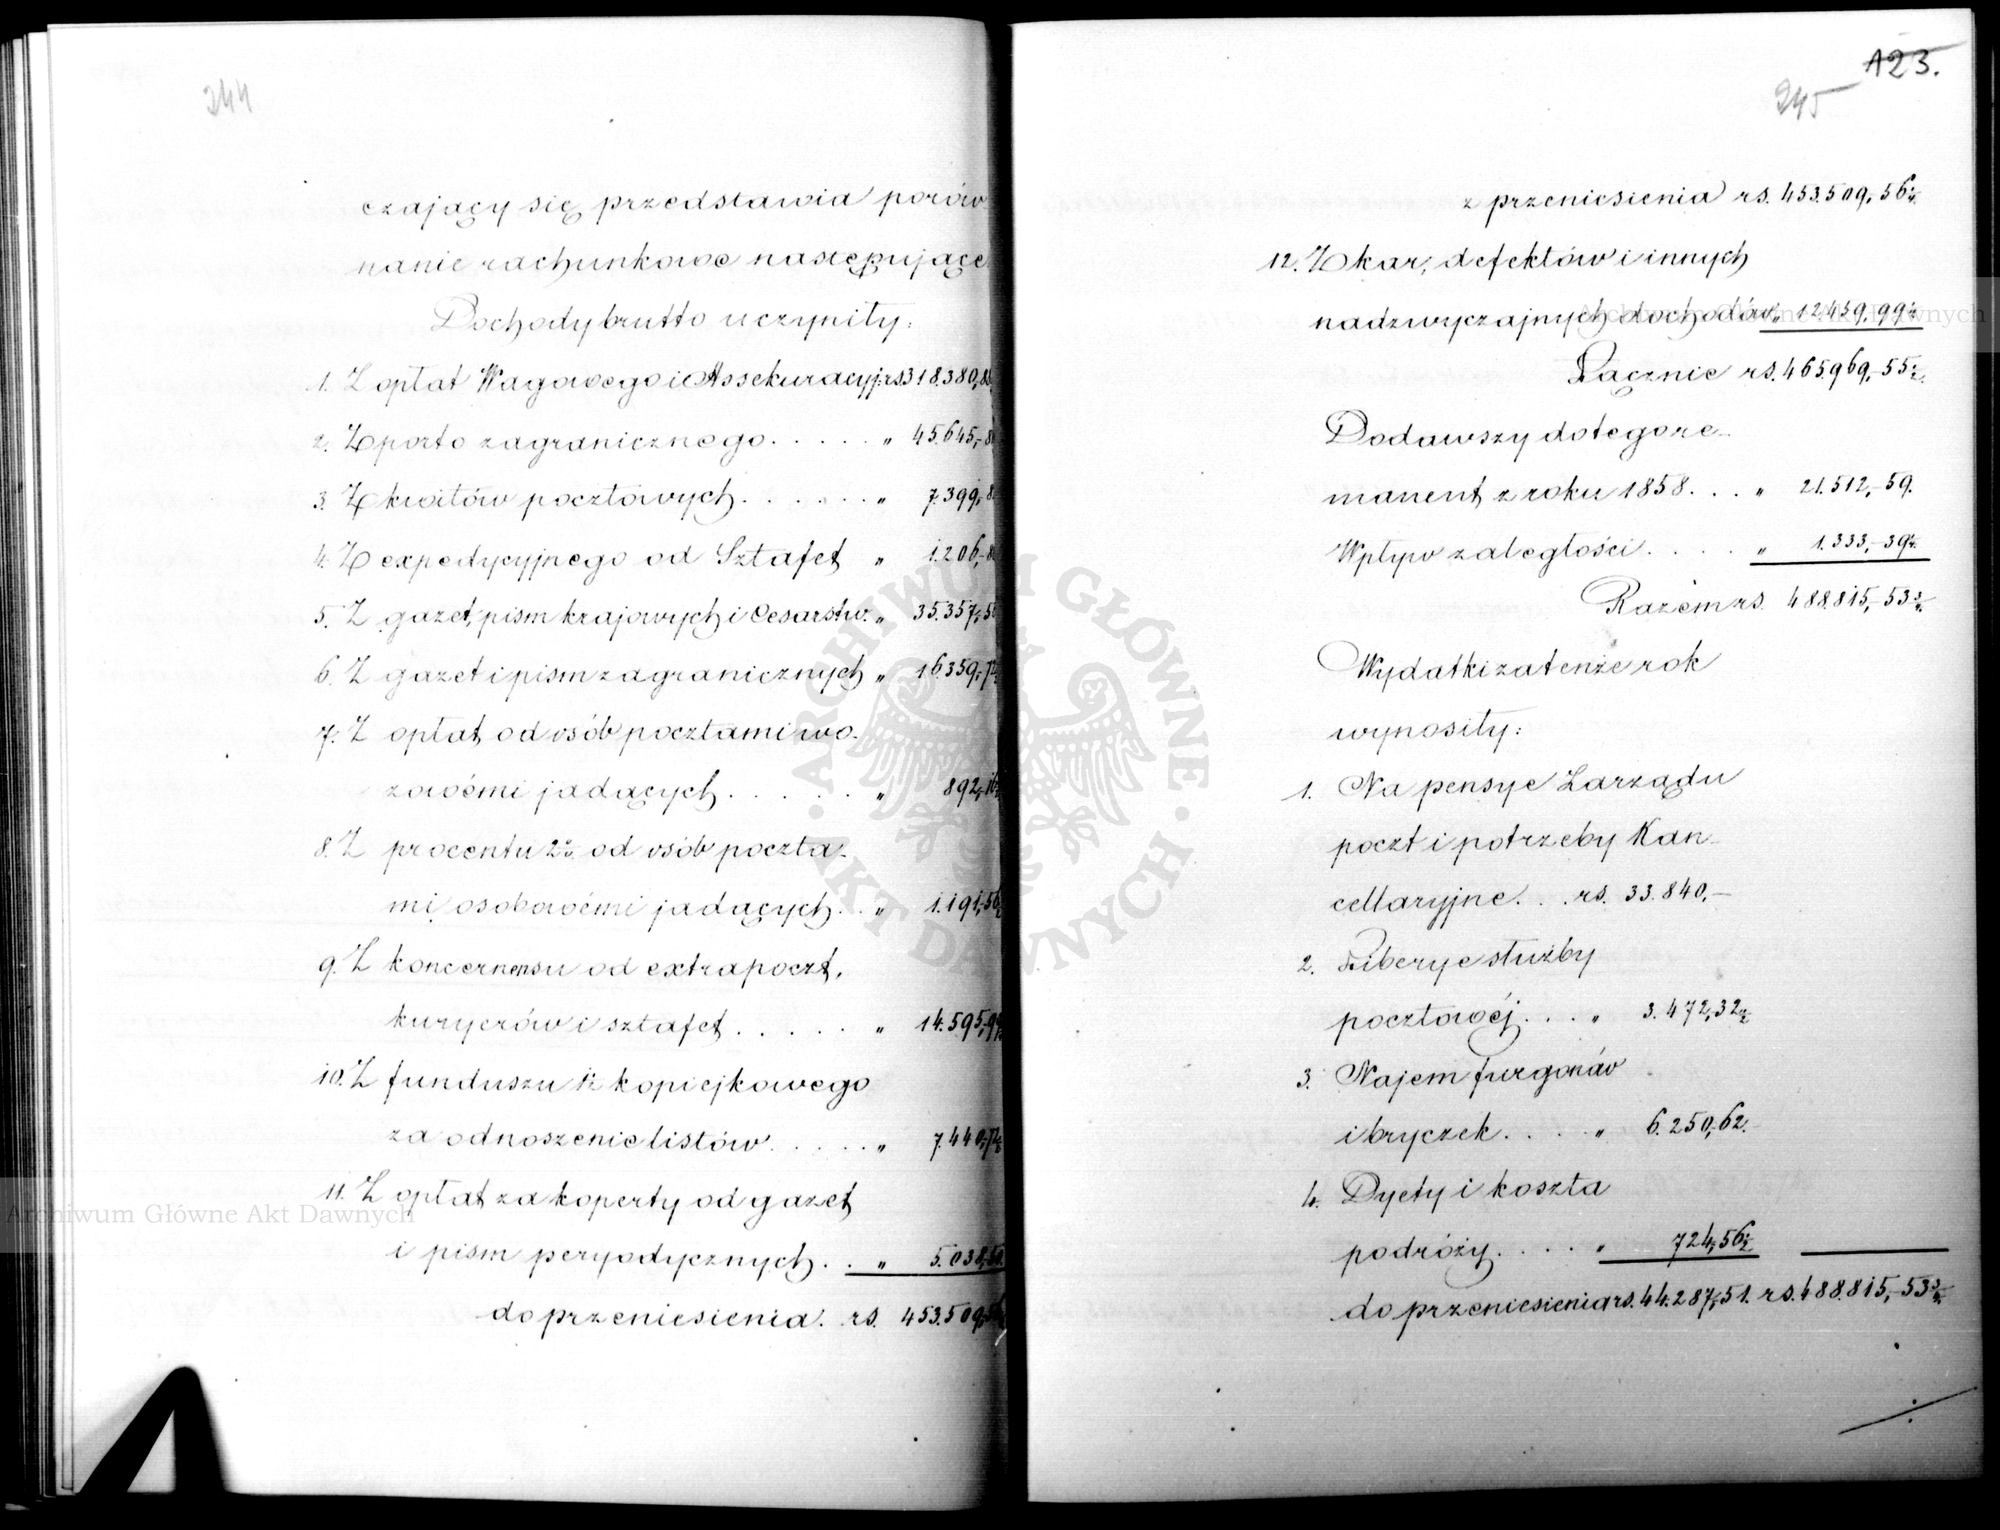 244
czający się przedstawia porów-
nanie rachunkowe następujące
Dochody brutto uczyniły:
1. Z opłat Wagowego i Assekuracyj: rs. 318.380,8
2. Z porto zagranicznego . . . . . " 45.645,-8
3. Z kwitów pocztowych . . . . . . " 7.399,-8
4. Z expedycyjnego od Sztafet " 1.206,-8
5. Z gazet, pism krajowych i Cesarstw. " 35.357,-5
6. Z gazet i pism zagranicznych " 16.359,-7
7. Z opłat od osób pocztami wo-
zowémi jadących . . . . . " 892,-16
8. Z procentu 2% od osób poczta-
mi osobowémi jadących . . " 1.191,-56
9. Z koncernensu od extrapoczt,
kuryerów i sztafet . . . . . " 14.595,-99
10. Z funduszu 1½ kopiejkowego
za odnoszenie listów . . . . . " 7.440,-7
11. Z opłat za koperty od gazet
i pism peryodycznych . . " 5.038,-50
do przeniesienia . rs. 453.509,-56
A23.
245
z przeniesienia rs. 453.509,-56¼.
12. Z kar, defektów i innych
nadzwyczajnych dochodów " 12.459,-99¼
Łącznie rs. 465.969,-55½.
Dodawszy do tego re-
manent z roku 1858 . . . " 21.512,-59.
Wpływ zaległości . . . . " 1.333,-39¼.
Razem rs. 488.815,-53¾.
Wydatki za tenże rok
wynosiły:
1. Na pensye Zarządu
poczt i potrzeby Kan-
cellaryjne . . . rs. 33.840,-
2. Liberye służby
pocztowéj . . . " 3.472,32½
3. Najem furgonów
i bryczek . . . . " 6.250,-62.
4. Dyety i koszta
podróży . . . . " 724,-56½
do przeniesienia rs. 44.287,-51. rs. 488.815,-53¾.
ARCHIWUM GŁÓWNE · AKT DAWNYCH ·
Archiwum Główne Akt Dawnych
Archiwum Główne Akt Dawnych